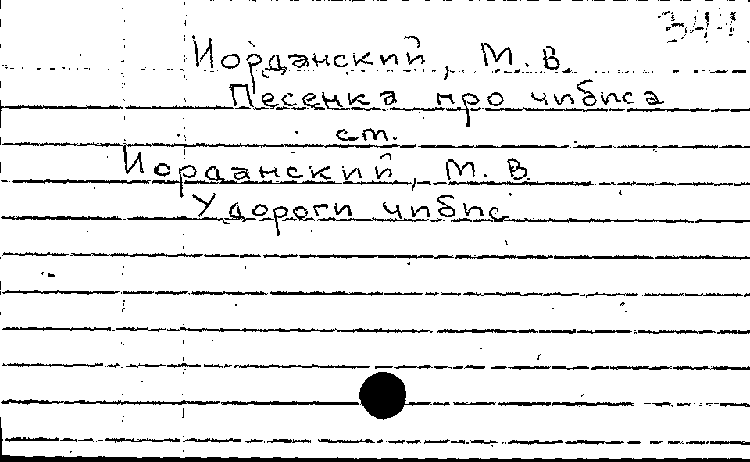 344
Иорданский, М. В.
Песенка про чибиса
см.
Иорданский, М. В
У дороги чибис